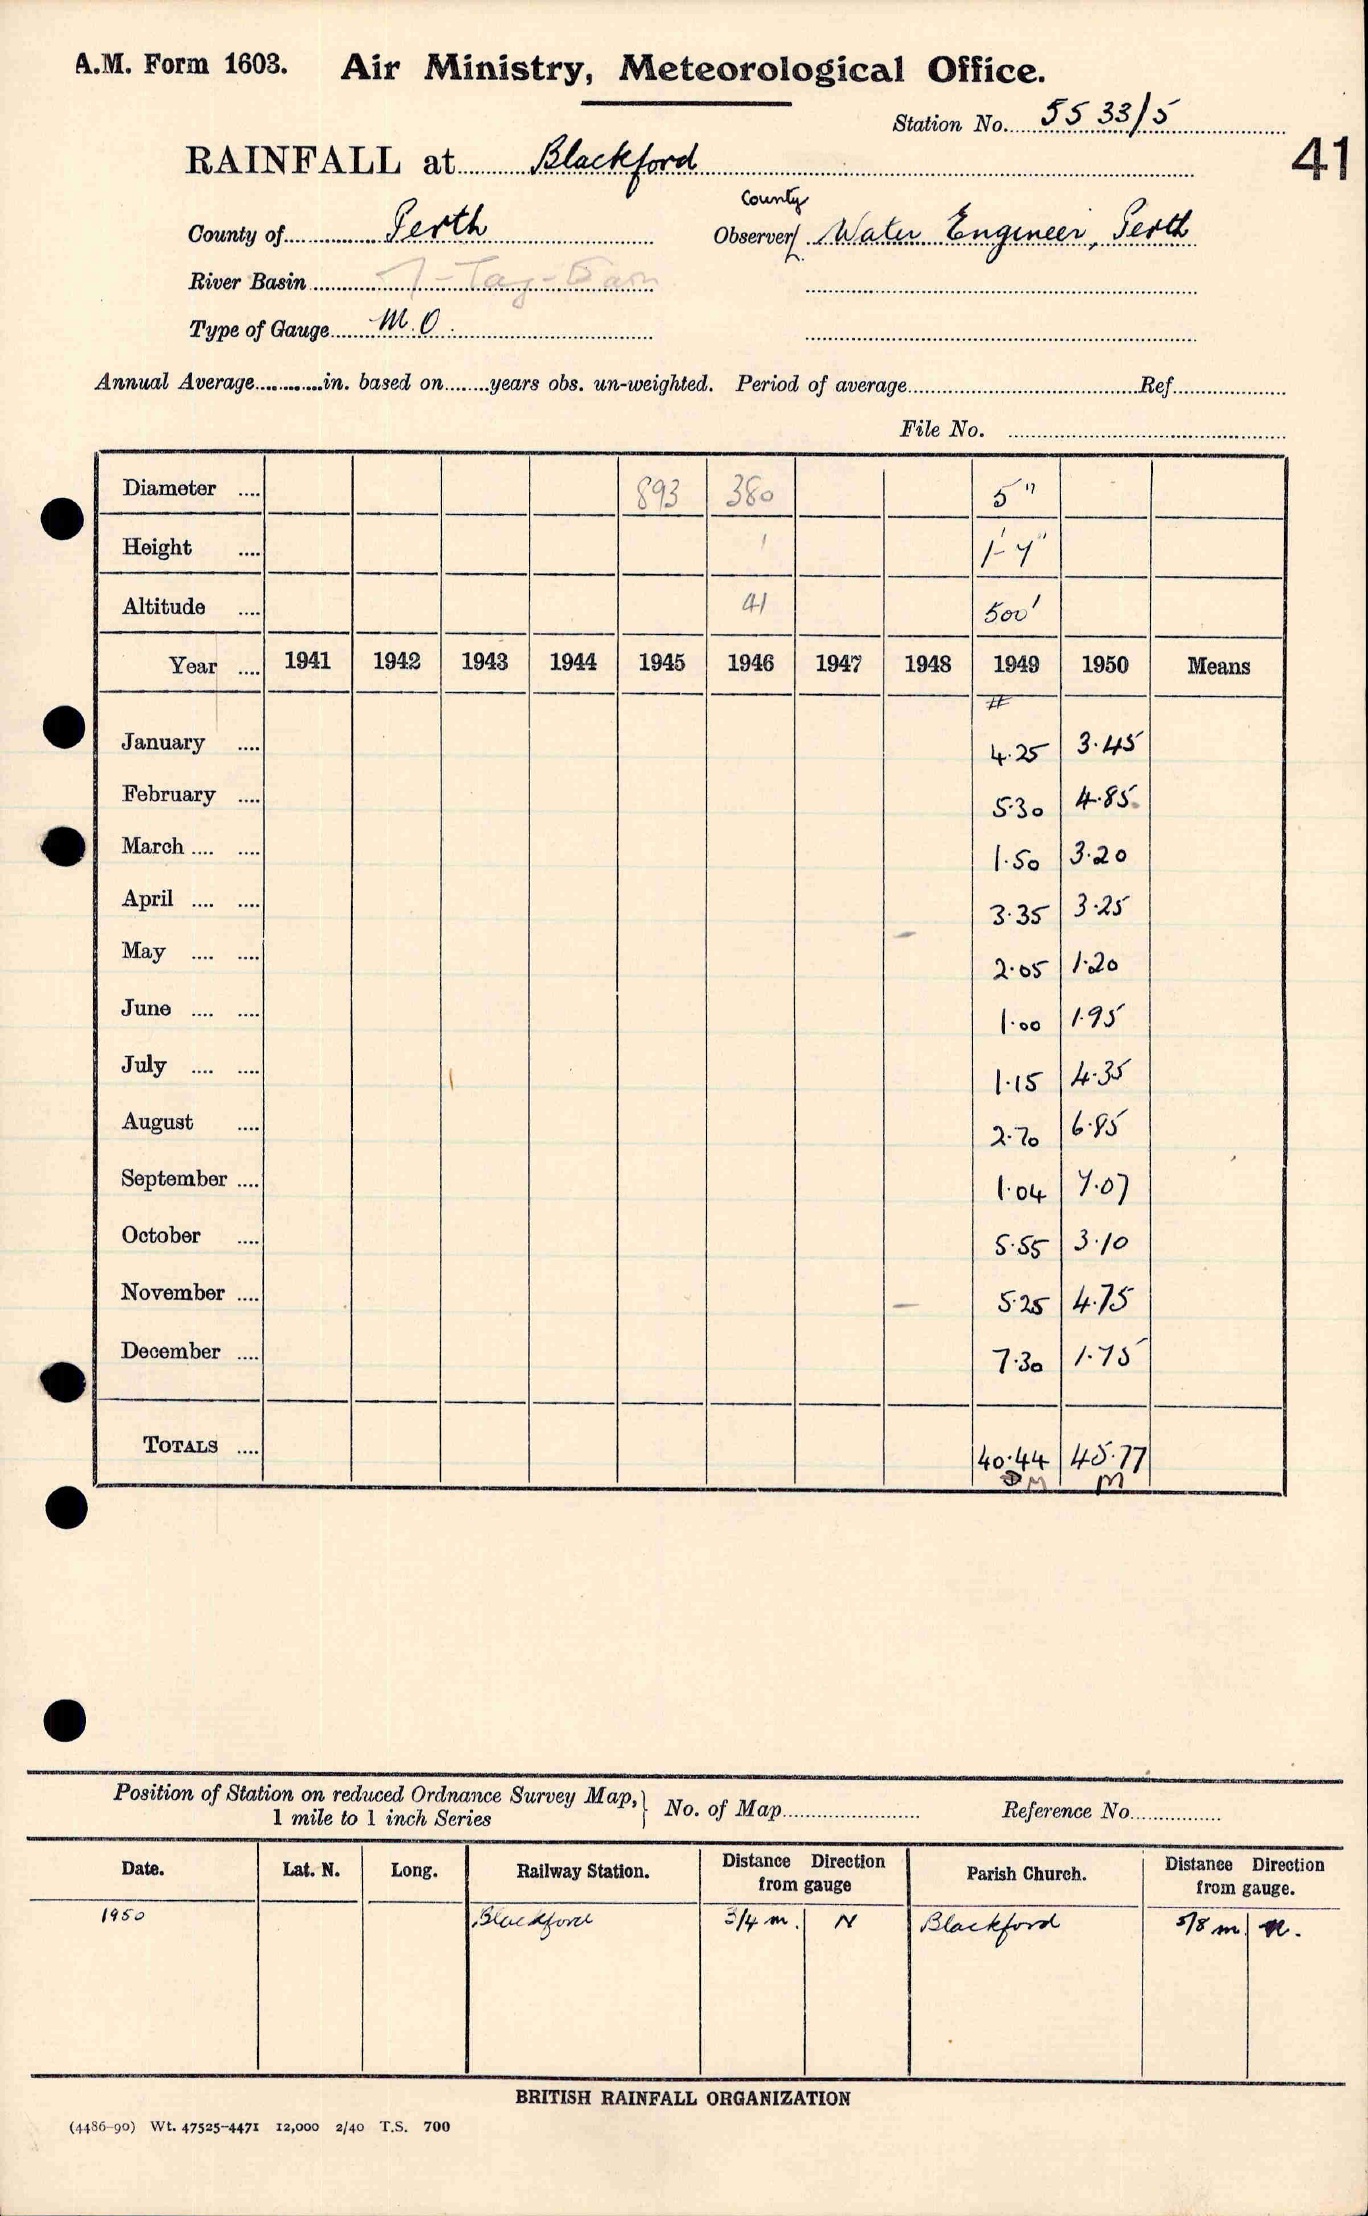 A.M. Form 1603. Air Ministry, Meteorological Office.
Station No. 5533/5
41
RAINFALL at Blackford
County
County of Perth Observer Water Engineer, Perth
River Basin 7-Tay-Earn
Type of Gauge M.O.
Annual Average in. based on years obs. un-weighted. Period of average Ref.
File No.
Diameter 893 380 5"
Height 1 1'-4"
Altitude 41 500'
Year 1941 1942 1943 1944 1945 1946 1947 1948 1949 1950 Means
#
January 4.25 3.45
February 5.30 4.85
March 1.50 3.20
April 3.35 3.25
May 2.05 1.20
June 1.00 1.95
July 1.15 4.35
August 2.70 6.85
September 1.04 7.07
October 5.55 3.10
November 5.25 4.75
December 7.30 1.75
TOTALS 40.44 45.77
M M
Position of Station on reduced Ordnance Survey Map, 1 mile to 1 inch Series } No. of Map Reference No.
Date. Lat. N. Long. Railway Station. Distance Direction from gauge Parish Church. Distance Direction from gauge.
1950 Blackford 3/4 m. N Blackford 5/8 m. N.
BRITISH RAINFALL ORGANIZATION
(4486-90) Wt. 47525-4471 12,000 2/40 T.S. 700